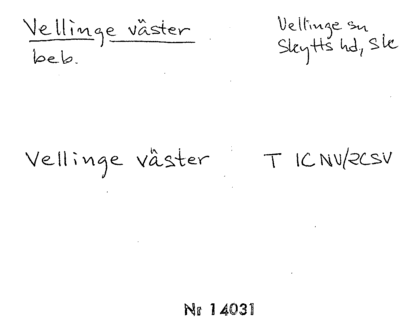 Vellinge väster
beb.
Vellinge sn
Skytts hd, Sk
Vellinge väster T 1C NV/2C SV
Nr 14031